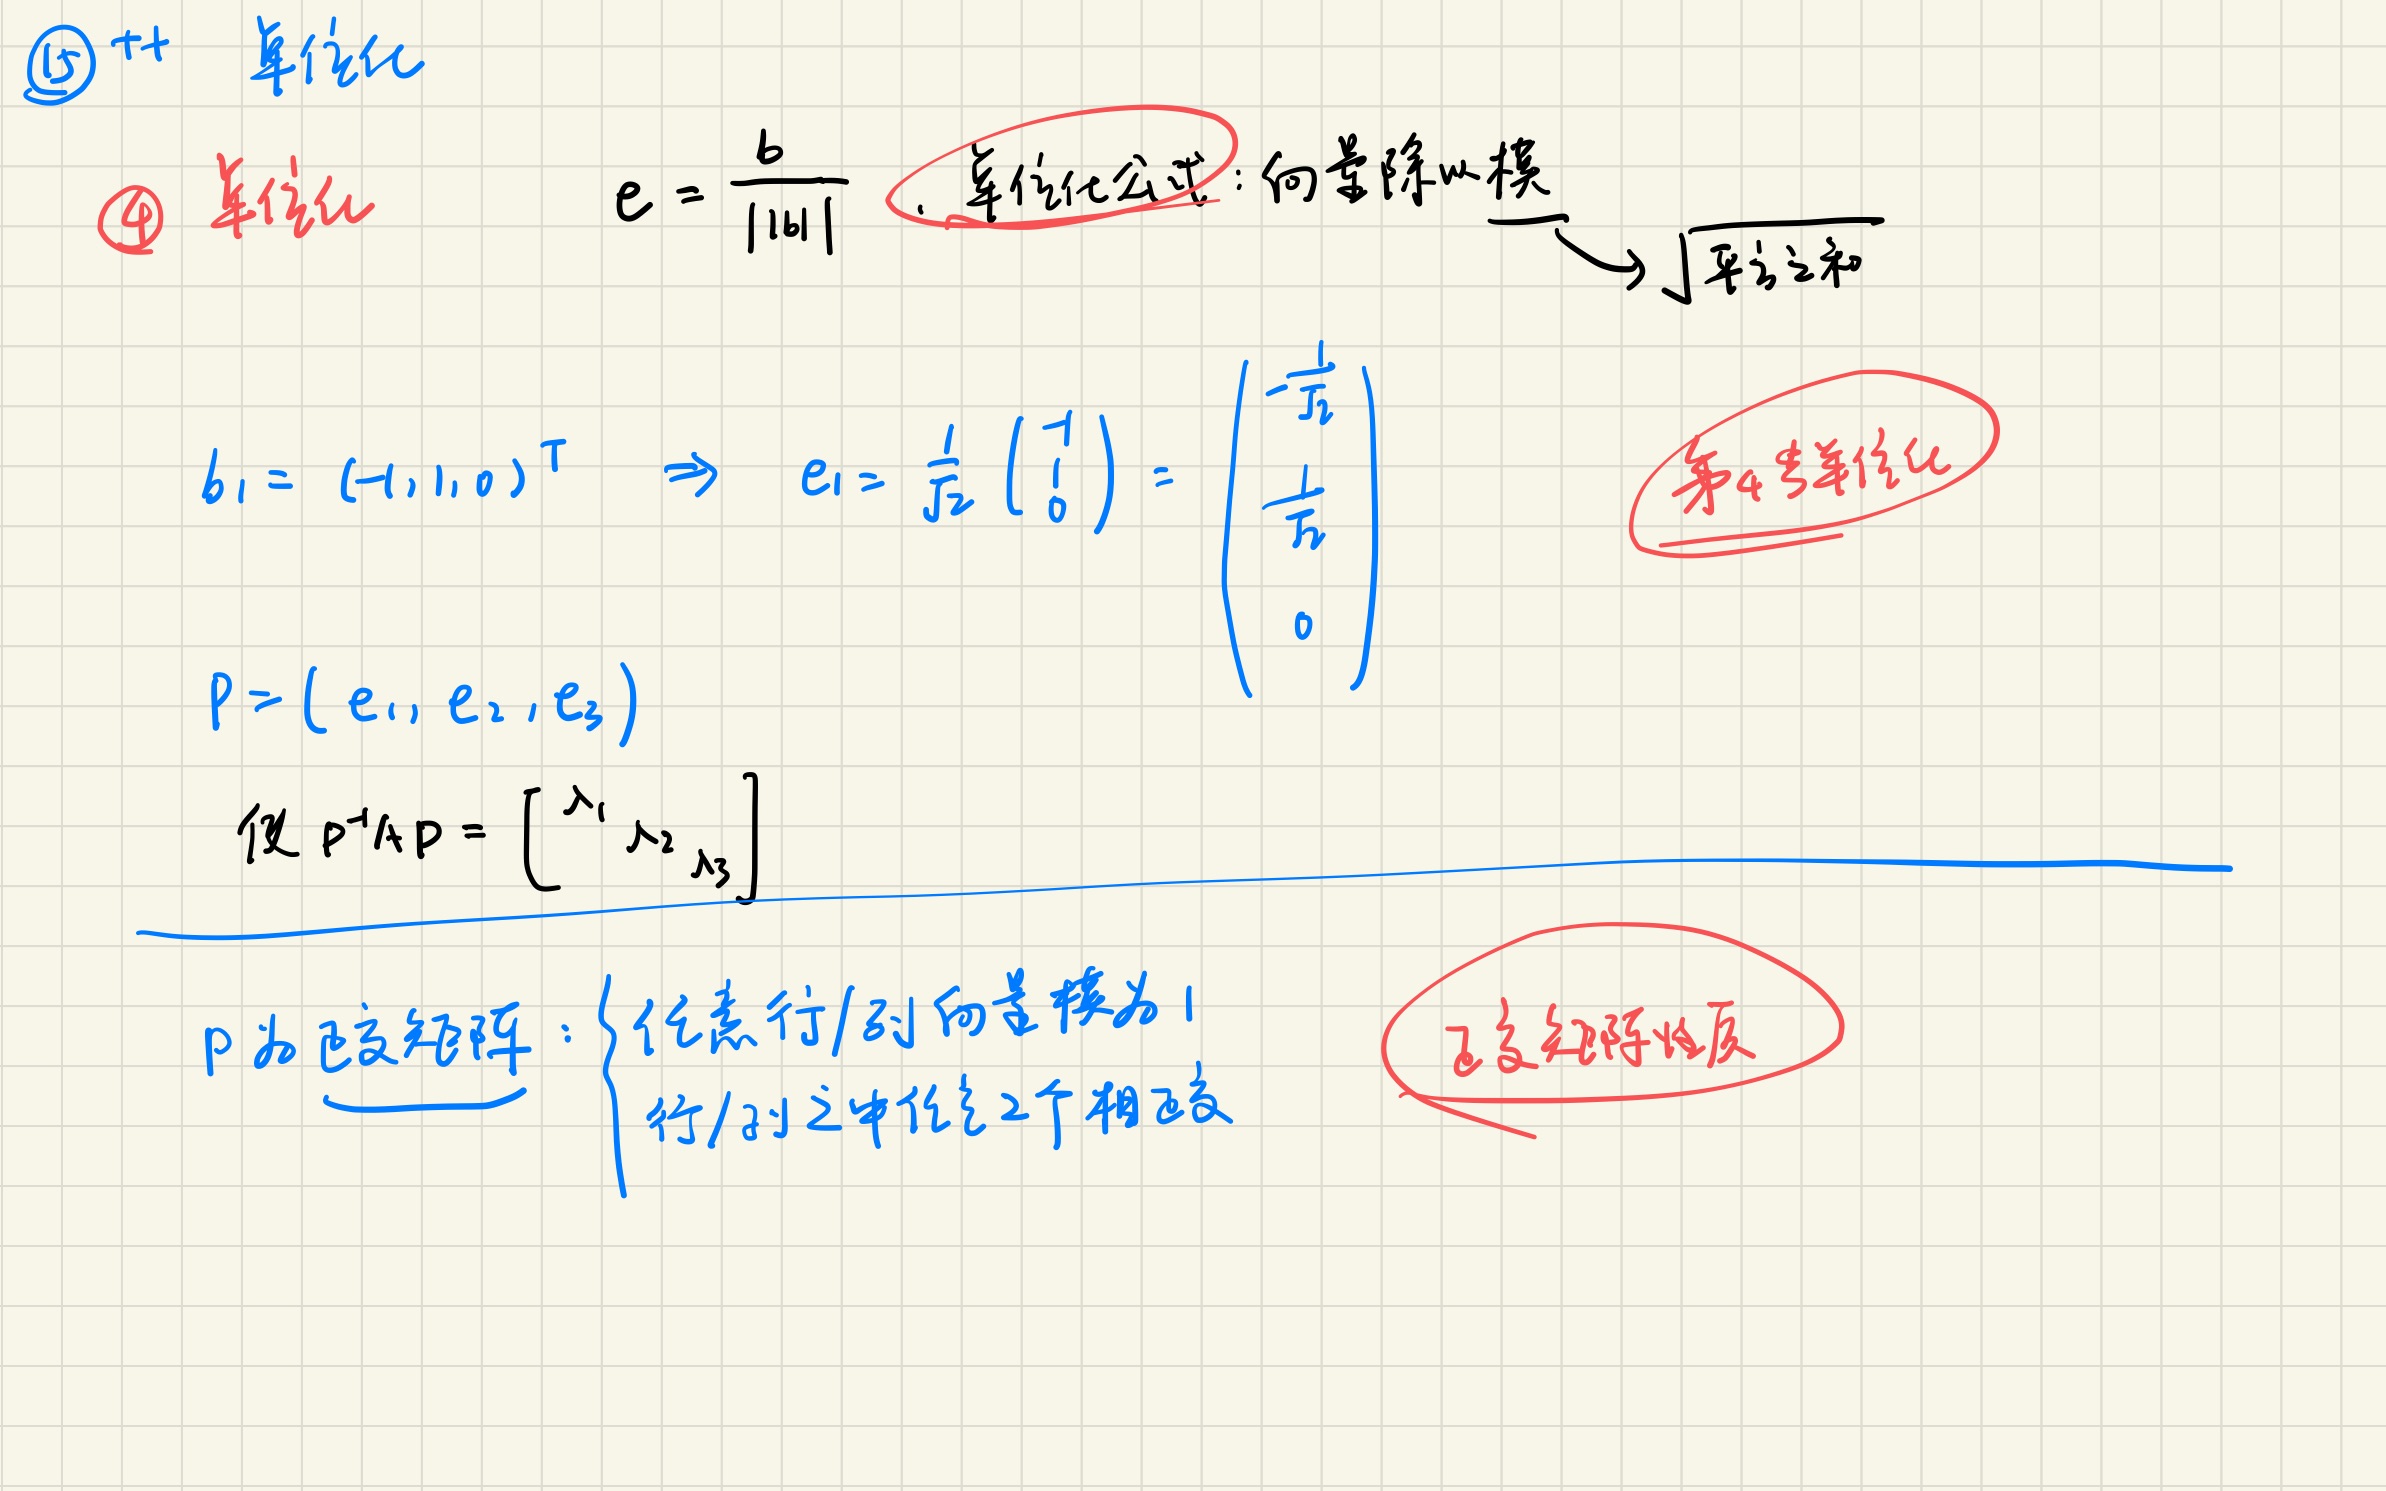 ⑮ ++ 单位化
④ 单位化 e = b / ||b|| . 单位化公式: 向量除以模 → √平方之和
b₁ = (-1, 1, 0)ᵀ ⇒ e₁ = 1/√2 (-1 1 0) = (-1/√2 1/√2 0) 第4步单位化
P = (e₁, e₂, e₃)
使 P⁻¹AP = [λ₁ λ₂ λ₃]
P为正交矩阵: { 任意行/列向量模为1 正交矩阵性质
行/列之中任意2个相正交